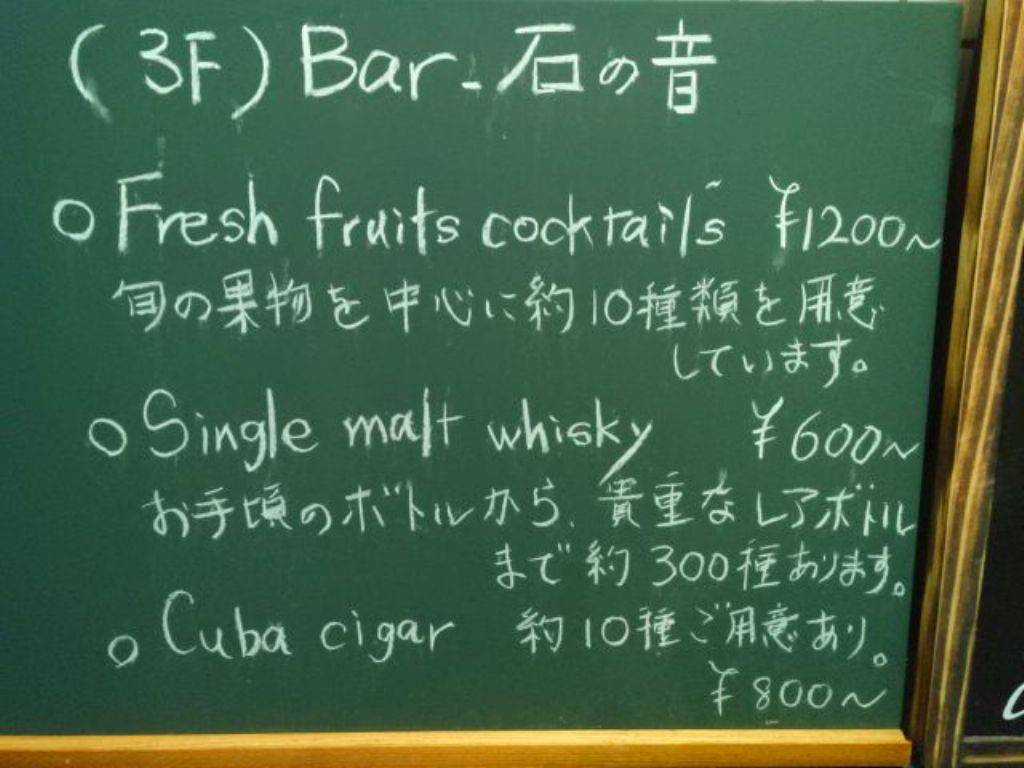 (3F) Bar - 石の音
○ Fresh fruits cocktails ¥1200~
旬の果物を中心に約10種類を用意
しています。
○ Single malt whisky ¥600~
お手頃のボトルから、貴重なレアボトル
まで約300種あります。
○ Cuba cigar 約10種ご用意あり。
¥800~